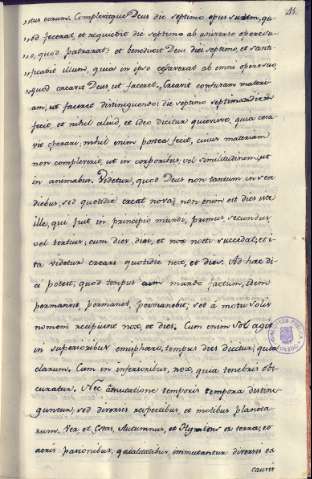 ornatus eorum. Complevitque Deus die septimo opus suum, qu-
od fecerat, et requievit die septimo ab universo opere su-
o, quod patrarat: et benedixit Deus diei septimo, et sanc-
tificavit illum, quia in ipso cessaverat ab omni opere suo,
quod creavit Deus, ut faceret, creavit materi-
am, ut faceret distinguendo: die septimo
fecit, et nihil aliud, et ideo dicitur quievisse, quia cessa-
vit operari, nihil enim postea fecit, cuius materiam
non compleverit, ut in corporibus, vel similitudinem, ut
in animabus. Videtur, quod Deus non tantum in sex
diebus, sed quotidie creat nova; non enim est dies iste
ille, qui fuit in principio mundi, primus, secundus
vel tertius, cum dies diei, et nox nocti succedat, et i-
ta videtur creare quotidie nox, et dies. Ad hoc di-
ci potest, quod tempus cum mundo factum, idem
permansit, permanet, permanebit, sed a motu solis
nomen recipiunt nox, et dies. Cum enim sol agit
in superioribus emispherii, tempus dies dicitur, quia
clarum. Cum in inferioribus, nox, quia tenebris ob-
curatur. Nec mutatione temporis tempora distin-
guntur, sed diversis respectibus et motibus planeta-
rum. Ver et Estas, Autumnus, et Hyems ex terrae, et
aeris passionibus, qualitatibus immutantur diversis ex
causis